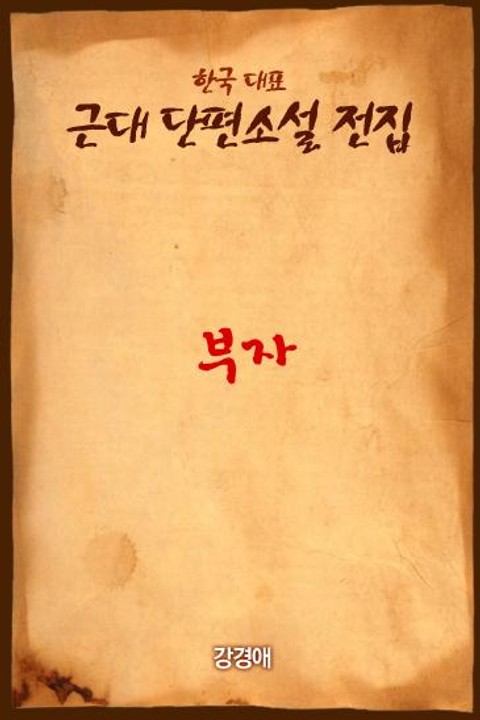 한국 대표
근대 단편소설 전집
부자
강경애